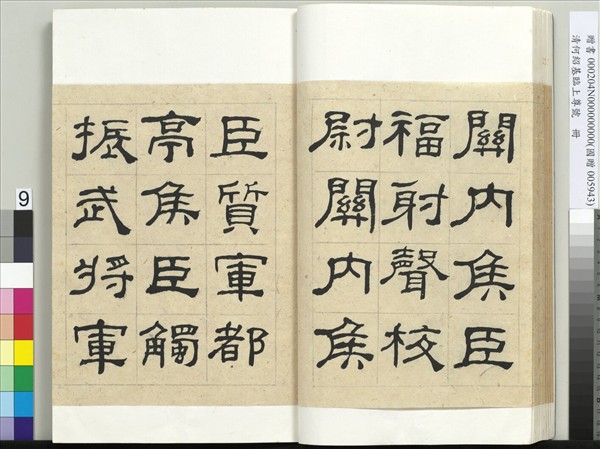 關內侯臣
福射聲校
尉關內侯
臣質軍都
亭侯臣觸
振武將軍
贈書 000204N000000000(國贈 005943)
清何紹基臨上尊號 冊
9